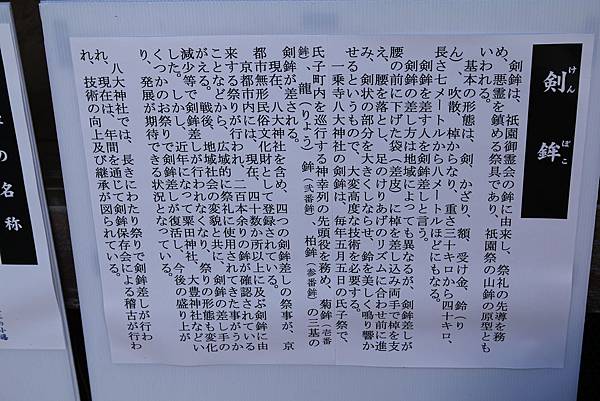 剣鉾
けん
ぼこ
剣鉾は、祇園御霊会の鉾に由来し、祭礼の先導を務
め、悪霊を鎮める祭具であり、祇園祭の山鉾の原型とも
いわれる。
基本の形態は、剣、かざり、額、受け金、鈴(り
ん)、吹散、棹からなり、重さ三十キロから四十キロ、
長さ七メートルから八メートルほどにもなる。
剣鉾を差す人を剣鉾差しと言う。
剣鉾の差し方は地域によっても異なるが、剣鉾差しが
腰の前に下げた袋(差皮)に棹を差し込み両手で棹を支
え、腰を落とし、足のけりあげのリズムに合わせ前に進
み、剣状の部分を大きくしならせ、鈴を美しく鳴り響か
せるというもので、大変高度な技術を必要する。
一乗寺八大神社の剣鉾は、毎年五月五日の氏子祭で、
氏子町内を巡行する神幸列の先頭役を務め、菊鉾(壱番
鉾)、龍(りょう)鉾(弐番鉾)、柏鉾(参番鉾)の三基の
剣鉾が差される。
現在、八大神社を含め、四つの剣鉾差しの祭事が、京
都市無形民俗文化財として登録されている。
京都市内には、現在、四十数か所以上に及ぶ剣鉾に由
来する祭りが行われ、二百本余りの鉾が確認されている
ことなどから、広域的に祭礼に使用されてきた事がうか
がえる。戦後、地域社会の変貌と共に、剣鉾の差し手の
減少等で剣鉾差しが行われなくなり、祭りの形態も変化
した。しかし、近年になって粟田神社、大豊神社などい
くつかのお祭りで剣鉾差しが復活し、今後の盛り上が
り、発展が期待できる状況となっている。
八大神社では、長きにわたり祭りで剣鉾差しが行わ
れ、現在は、年間を通じて剣鉾保存会による稽古が行わ
れ、技術の向上及び継承が図られている。
の名称